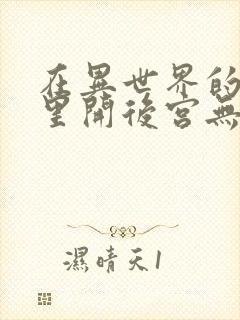 在異世界的
里開後宮無
濕晴天1